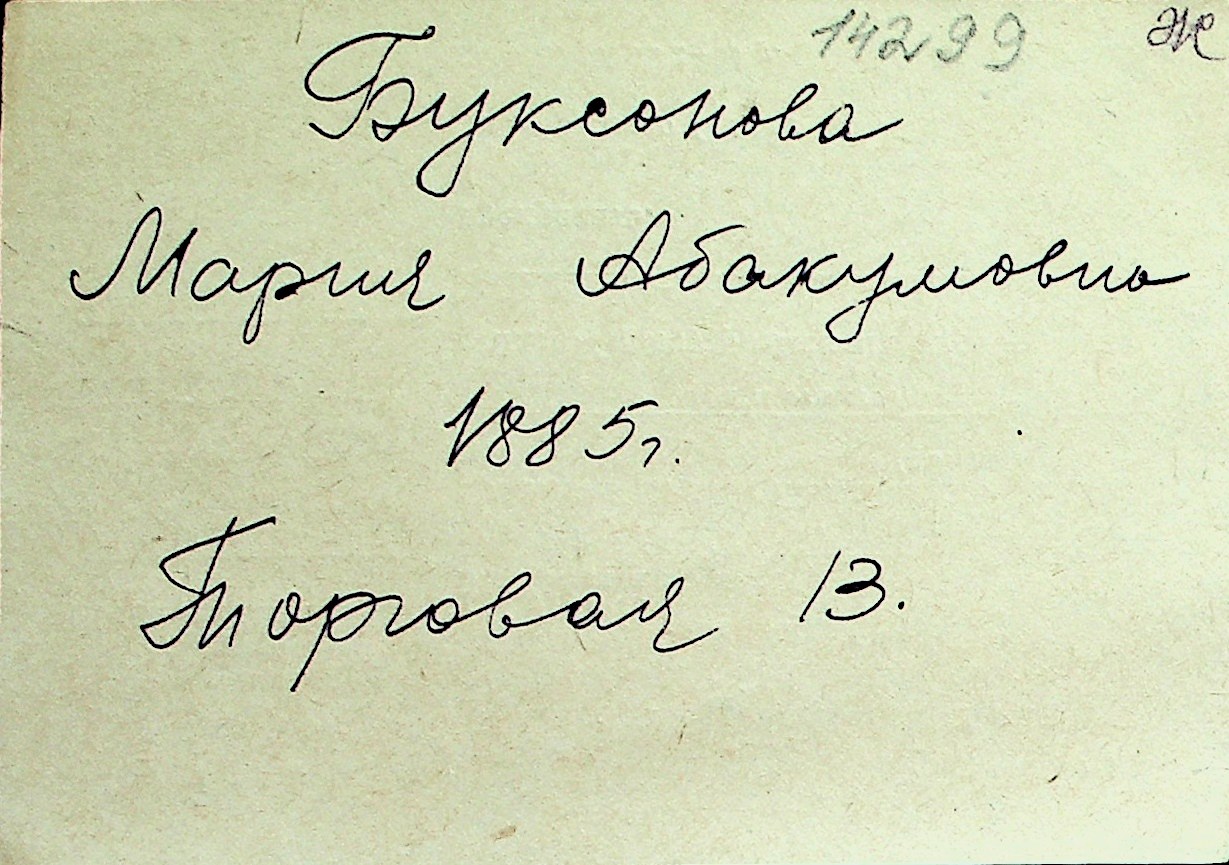 14299 Ж
Буксонова
Мария Абакумовна
1885г.
Торговая 13.